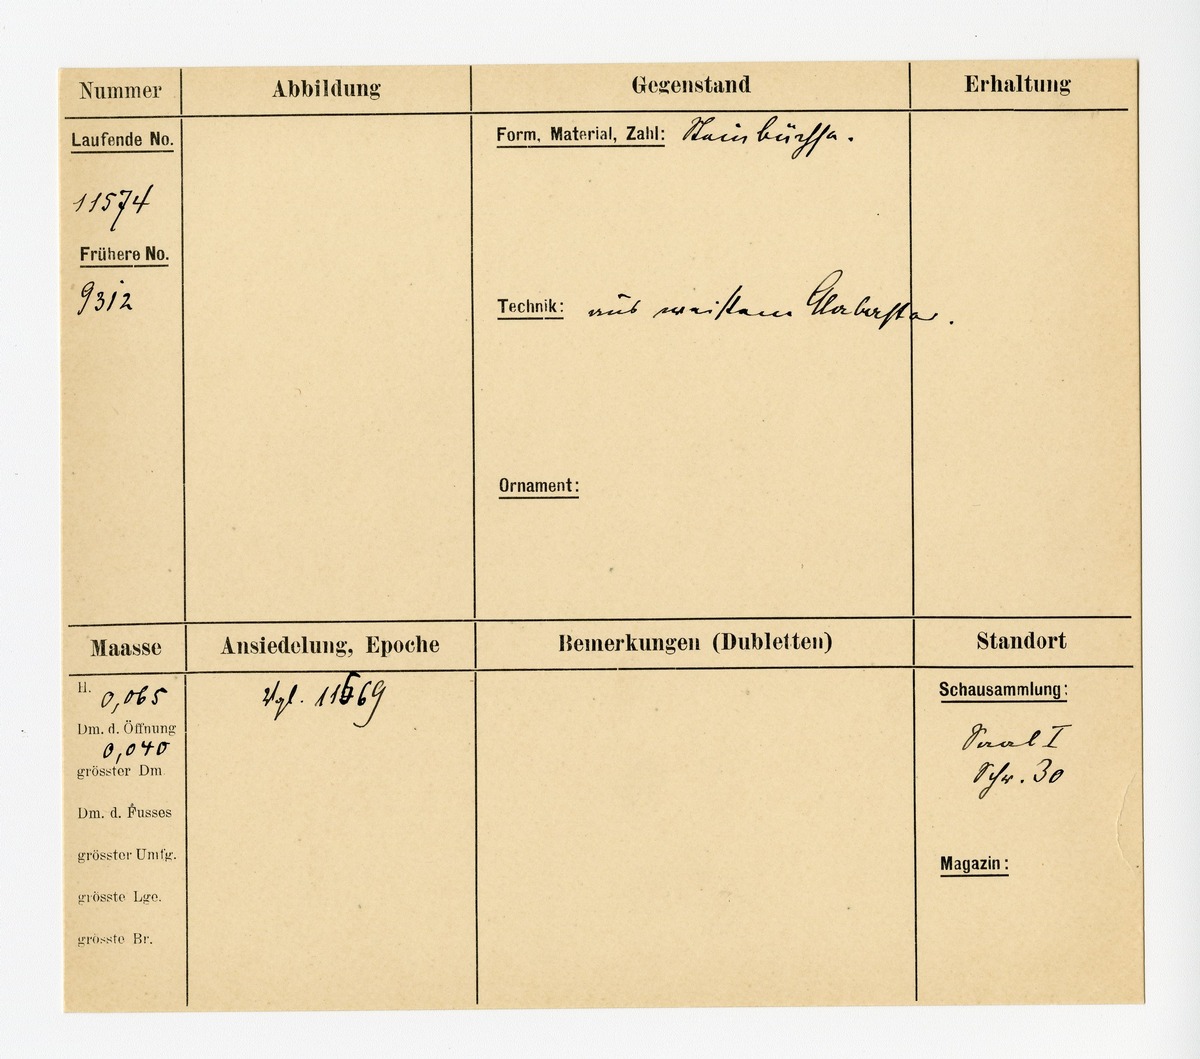 Nummer
Abbildung
Gegenstand
Erhaltung
Laufende No.
11574
Frühere No.
9312
Form, Material, Zahl: Steinbüchse.
Technik: aus weißem Alabaster.
Ornament:
Maasse
Ansiedelung, Epoche
Bemerkungen (Dubletten)
Standort
H. 0,065
Dm. d. Öffnung
0,040
grösster Dm
Dm. d. Fusses
grösster Umfg.
grösste Lge.
grösste Br.
Vgl. 11569
Schausammlung:
Saal I
Schr. 30
Magazin: